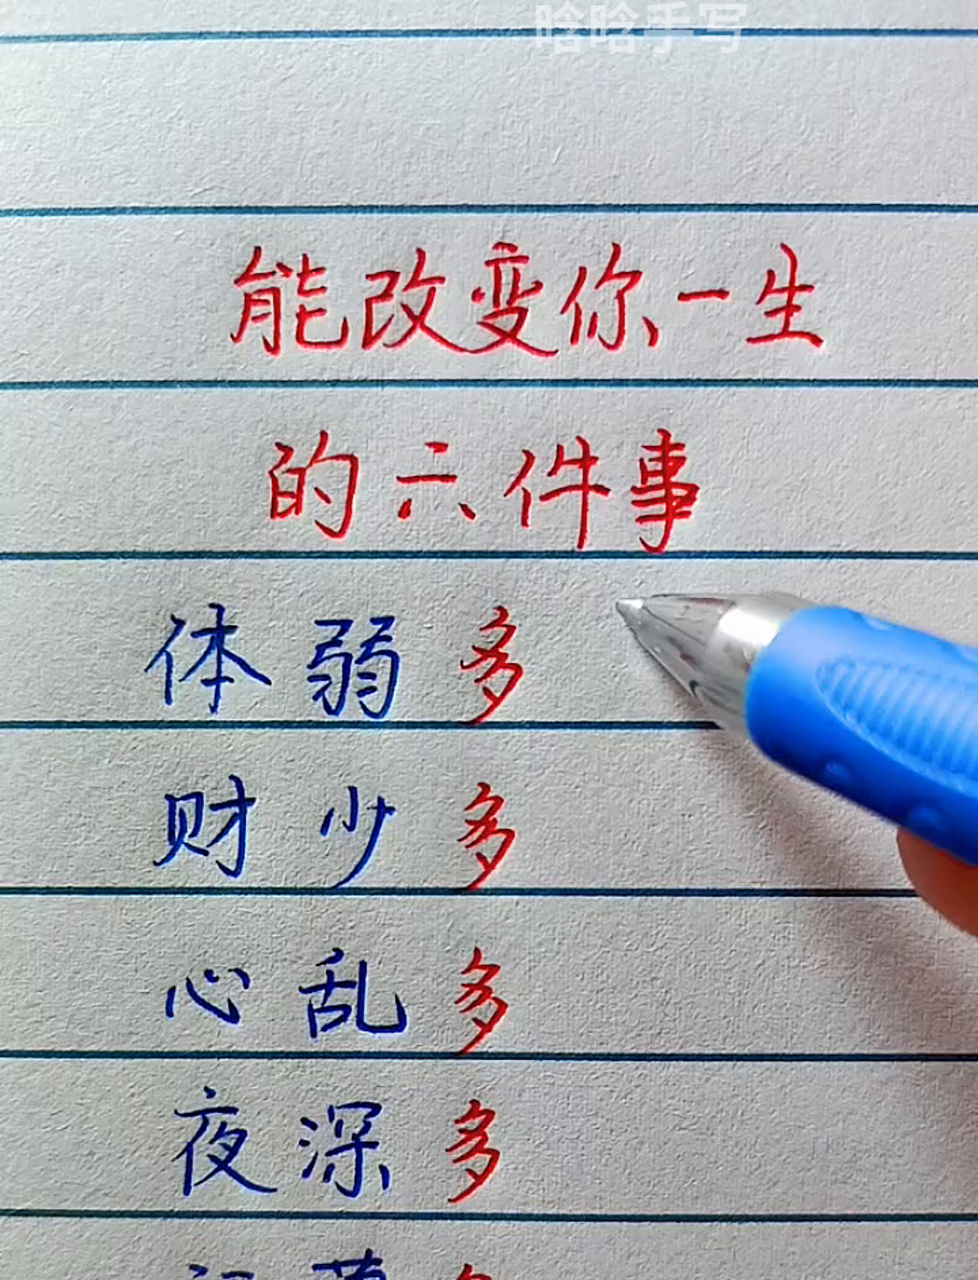 晗晗手写
能改变你一生
的六件事
体弱多
财少多
心乱多
夜深多